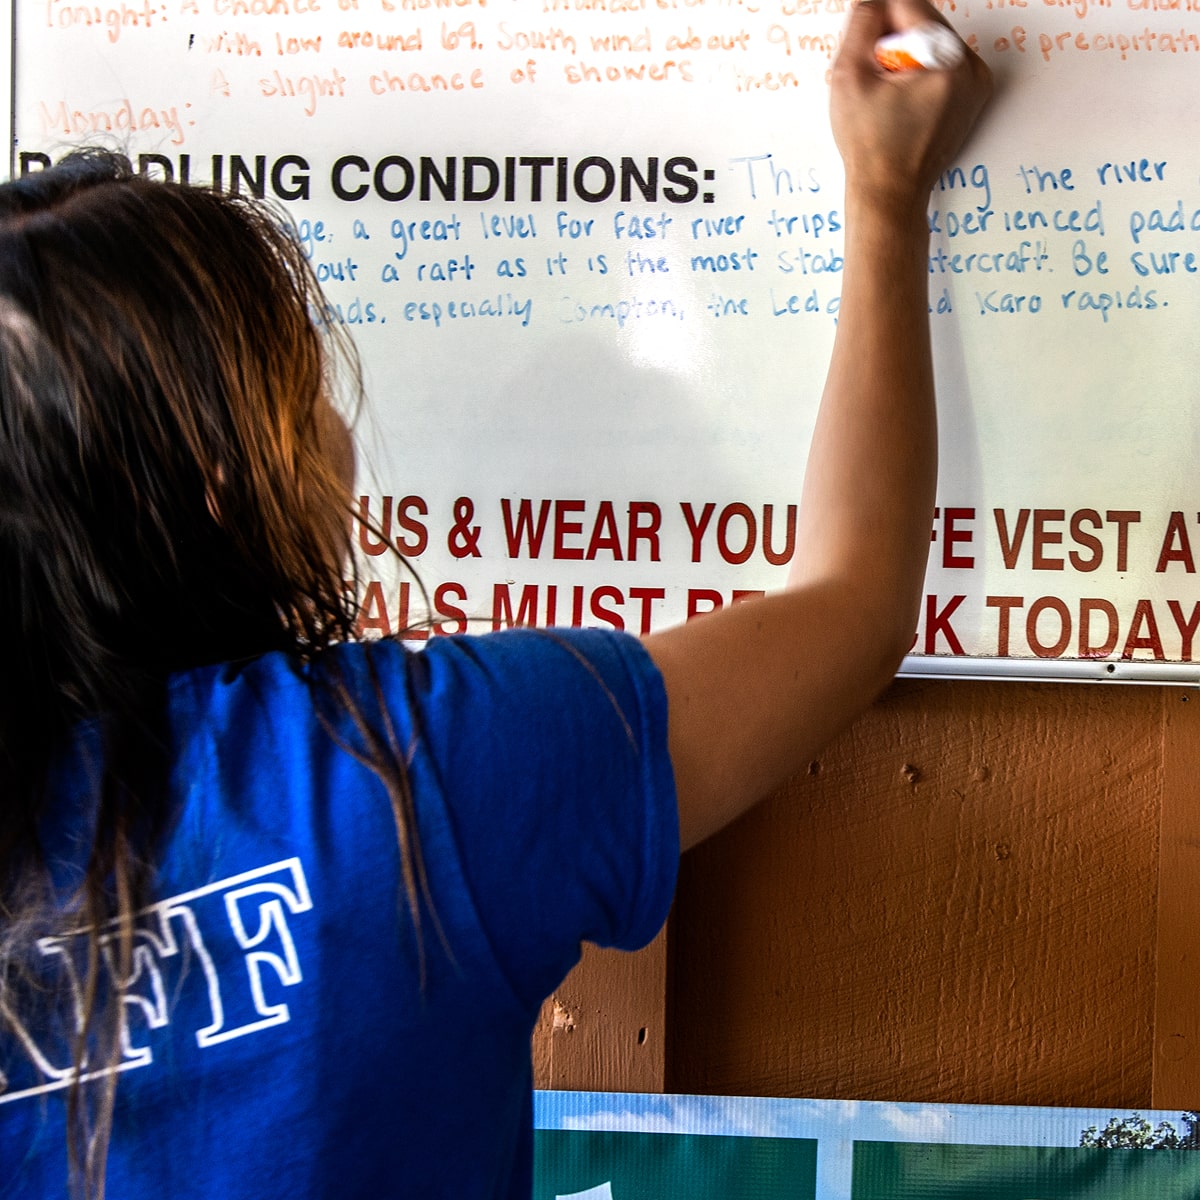 Tonight: A chance of showers thunderstorms
with low around 69. South wind about 9 mp of precipitat
A slight chance of showers then
Monday:
DLING CONDITIONS: This ing the river
ge, a great level for fast river trips xperienced padd
out a raft as it is the most stab tercraft. Be sure
pids, especially Compton, the Ledg d Karo rapids.
US & WEAR YOU FE VEST A
ALS MUST BE CK TODAY
AFF